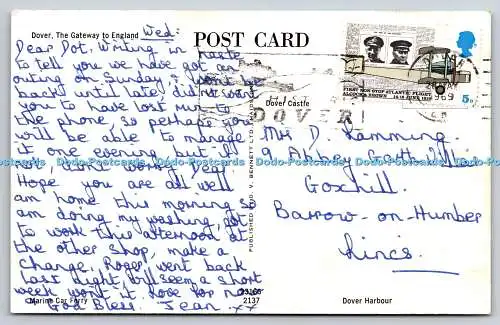 Dover, The Gateway to England
Wed:
Dear Dot, Writing in haste
to tell you we have got an
outing on Sunday & won't be
back until late, didn't want
you to have lost run to
the phone, so perhaps you
will be able to manage
it one evening, but if
not, don't worry Dear.
Hope you are all well
am home this morning so
am doing my washing, got
to work this afternoon at
the other shop, make a
change, Roger went back
last night, will seem a short
week won't it. Love for now
God Bless. Jean. xx
Marine Car Ferry
POST CARD
Dover Castle
DOVER
PUBLISHED BY D. V. BENNETT LTD.
2137
FIRST NON STOP ATLANTIC FLIGHT
ALCOCK & BROWN 14-15 JUNE 1919
5D
1969
Mrs D. Lamming
9 Abbey Cott. Villas
Goxhill.
Barrow-on-Humber
Lincs.
Dover Harbour
Dodo-Postcards Dodo-Postcards Dodo-Postcards Dodo-Postcards Dodo-Postcards